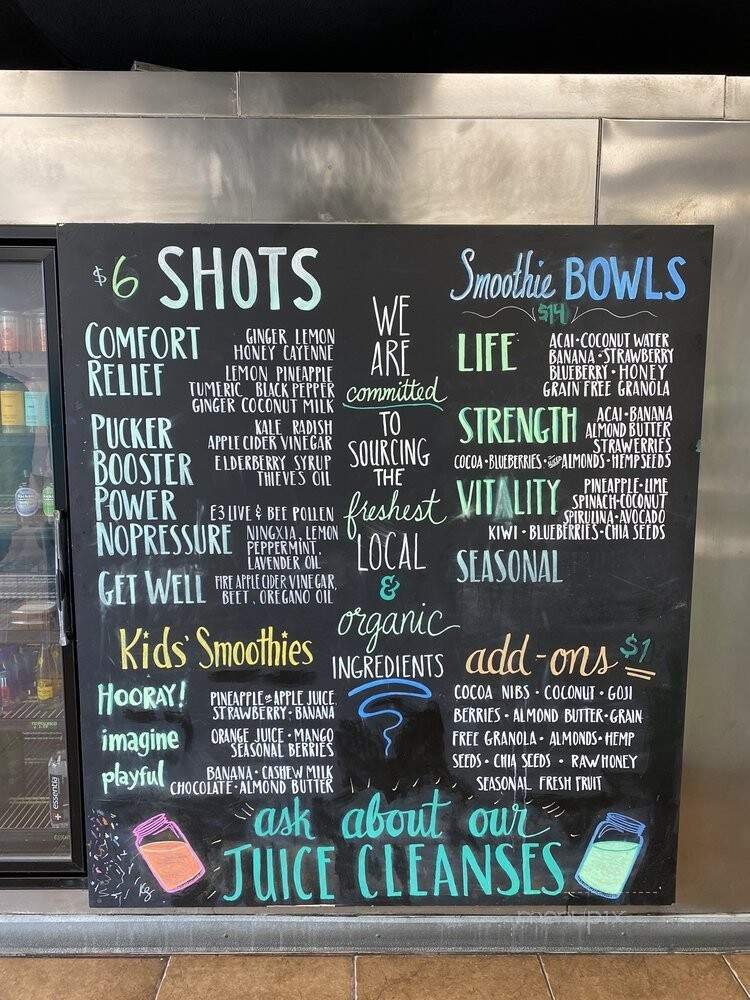 $6 SHOTS
COMFORT
GINGER LEMON
HONEY CAYENNE
RELIEF
LEMON PINEAPPLE
TUMERIC BLACK PEPPER
GINGER COCONUT MILK
PUCKER
KALE RADISH
APPLE CIDER VINEGAR
BOOSTER
ELDERBERRY SYRUP
THIEVES OIL
POWER
E3 LIVE & BEE POLLEN
NOPRESSURE
NINGXIA, LEMON
PEPPERMINT,
LAVENDER OIL
GET WELL
FIRE APPLE CIDER VINEGAR,
BEET, OREGANO OIL
Kids' Smoothies
HOORAY!
PINEAPPLE OR APPLE JUICE
STRAWBERRY • BANANA
imagine
ORANGE JUICE • MANGO
SEASONAL BERRIES
playful
BANANA • CASHEW MILK
CHOCOLATE • ALMOND BUTTER
WE
ARE
committed
TO
SOURCING
THE
freshest
LOCAL
&
organic
INGREDIENTS
Smoothie BOWLS
$14
LIFE
ACAI • COCONUT WATER
BANANA • STRAWBERRY
BLUEBERRY • HONEY
GRAIN FREE GRANOLA
STRENGTH
ACAI • BANANA
ALMOND BUTTER
STRAWERRIES
COCOA • BLUEBERRIES • ALMONDS • HEMPSEEDS
VITALITY
PINEAPPLE • LIME
SPINACH • COCONUT
SPIRULINA • AVOCADO
KIWI • BLUEBERRIES • CHIA SEEDS
SEASONAL
add-ons $1
COCOA NIBS • COCONUT • GOJI
BERRIES • ALMOND BUTTER • GRAIN
FREE GRANOLA • ALMONDS • HEMP
SEEDS • CHIA SEEDS • RAW HONEY
SEASONAL FRESH FRUIT
ask about our
JUICE CLEANSES
essentia
menupix